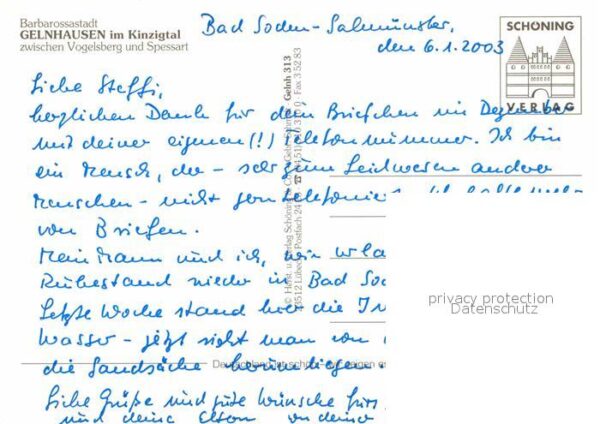 Barbarossastadt
GELNHAUSEN im Kinzigtal
zwischen Vogelsberg und Spessart
Bad Soden-Salmünster,
den 6.1.2003
SCHÖNING
VERLAG
Liebe Steffi,
herzlichen Dank für dein Briefchen im Dezember
mit deiner eigenen (!) Telefonnummer. Ich bin
ein Mensch, der - sehr zum Leidwesen anderer
Menschen - nicht gern telefoniert
von Briefen.
Mein Mann und ich, wir
Ruhestand wieder in Bad Sod
Letzte Woche stand hier die
Wasser - jetzt sieht man von
die Sandsäcke herumliegen.
Liebe Grüße und gute Wünsche fürs
und deine Eltern
Gelnh 313
privacy protection
Datenschutz